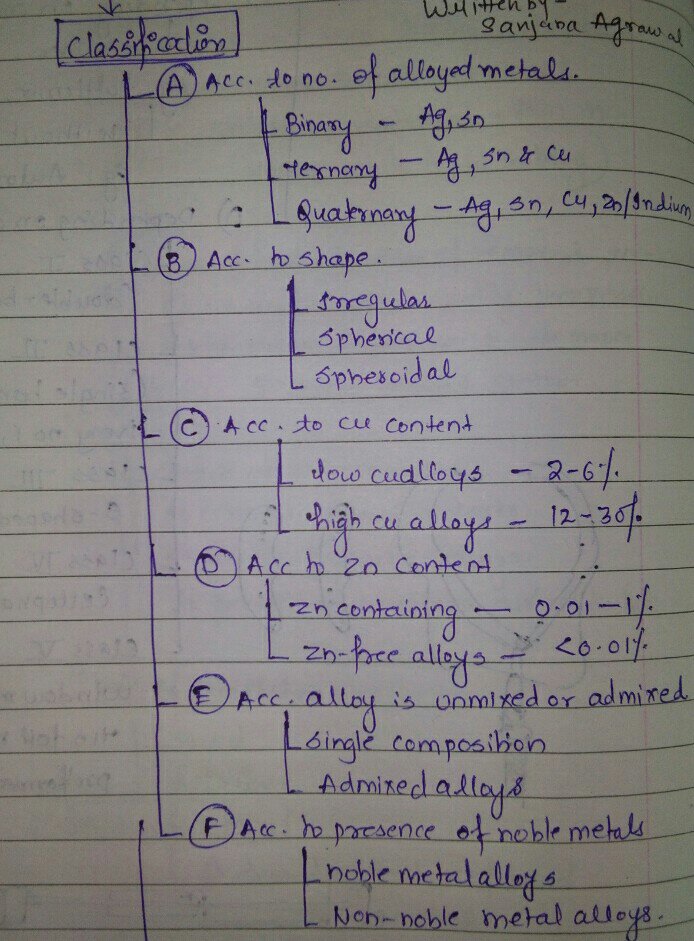 Written by -
Sanjana Agrawal
Classification
(A) Acc. to no. of alloyed metals.
Binary - Ag, Sn
Ternary - Ag, Sn & Cu
Quaternary - Ag, Sn, Cu, Zn/Indium
(B) Acc. to shape.
Irregular
Spherical
Spheroidal
(C) Acc. to cu content
low cu alloys - 2-6%.
high cu alloys - 12-30%.
(D) Acc to Zn content
Zn containing - 0.01-1%.
Zn-free alloys - <0.01%.
(E) Acc. alloy is unmixed or admixed
Single composition
Admixed alloys
(F) Acc. to presence of noble metals
noble metal alloys
Non-noble metal alloys.